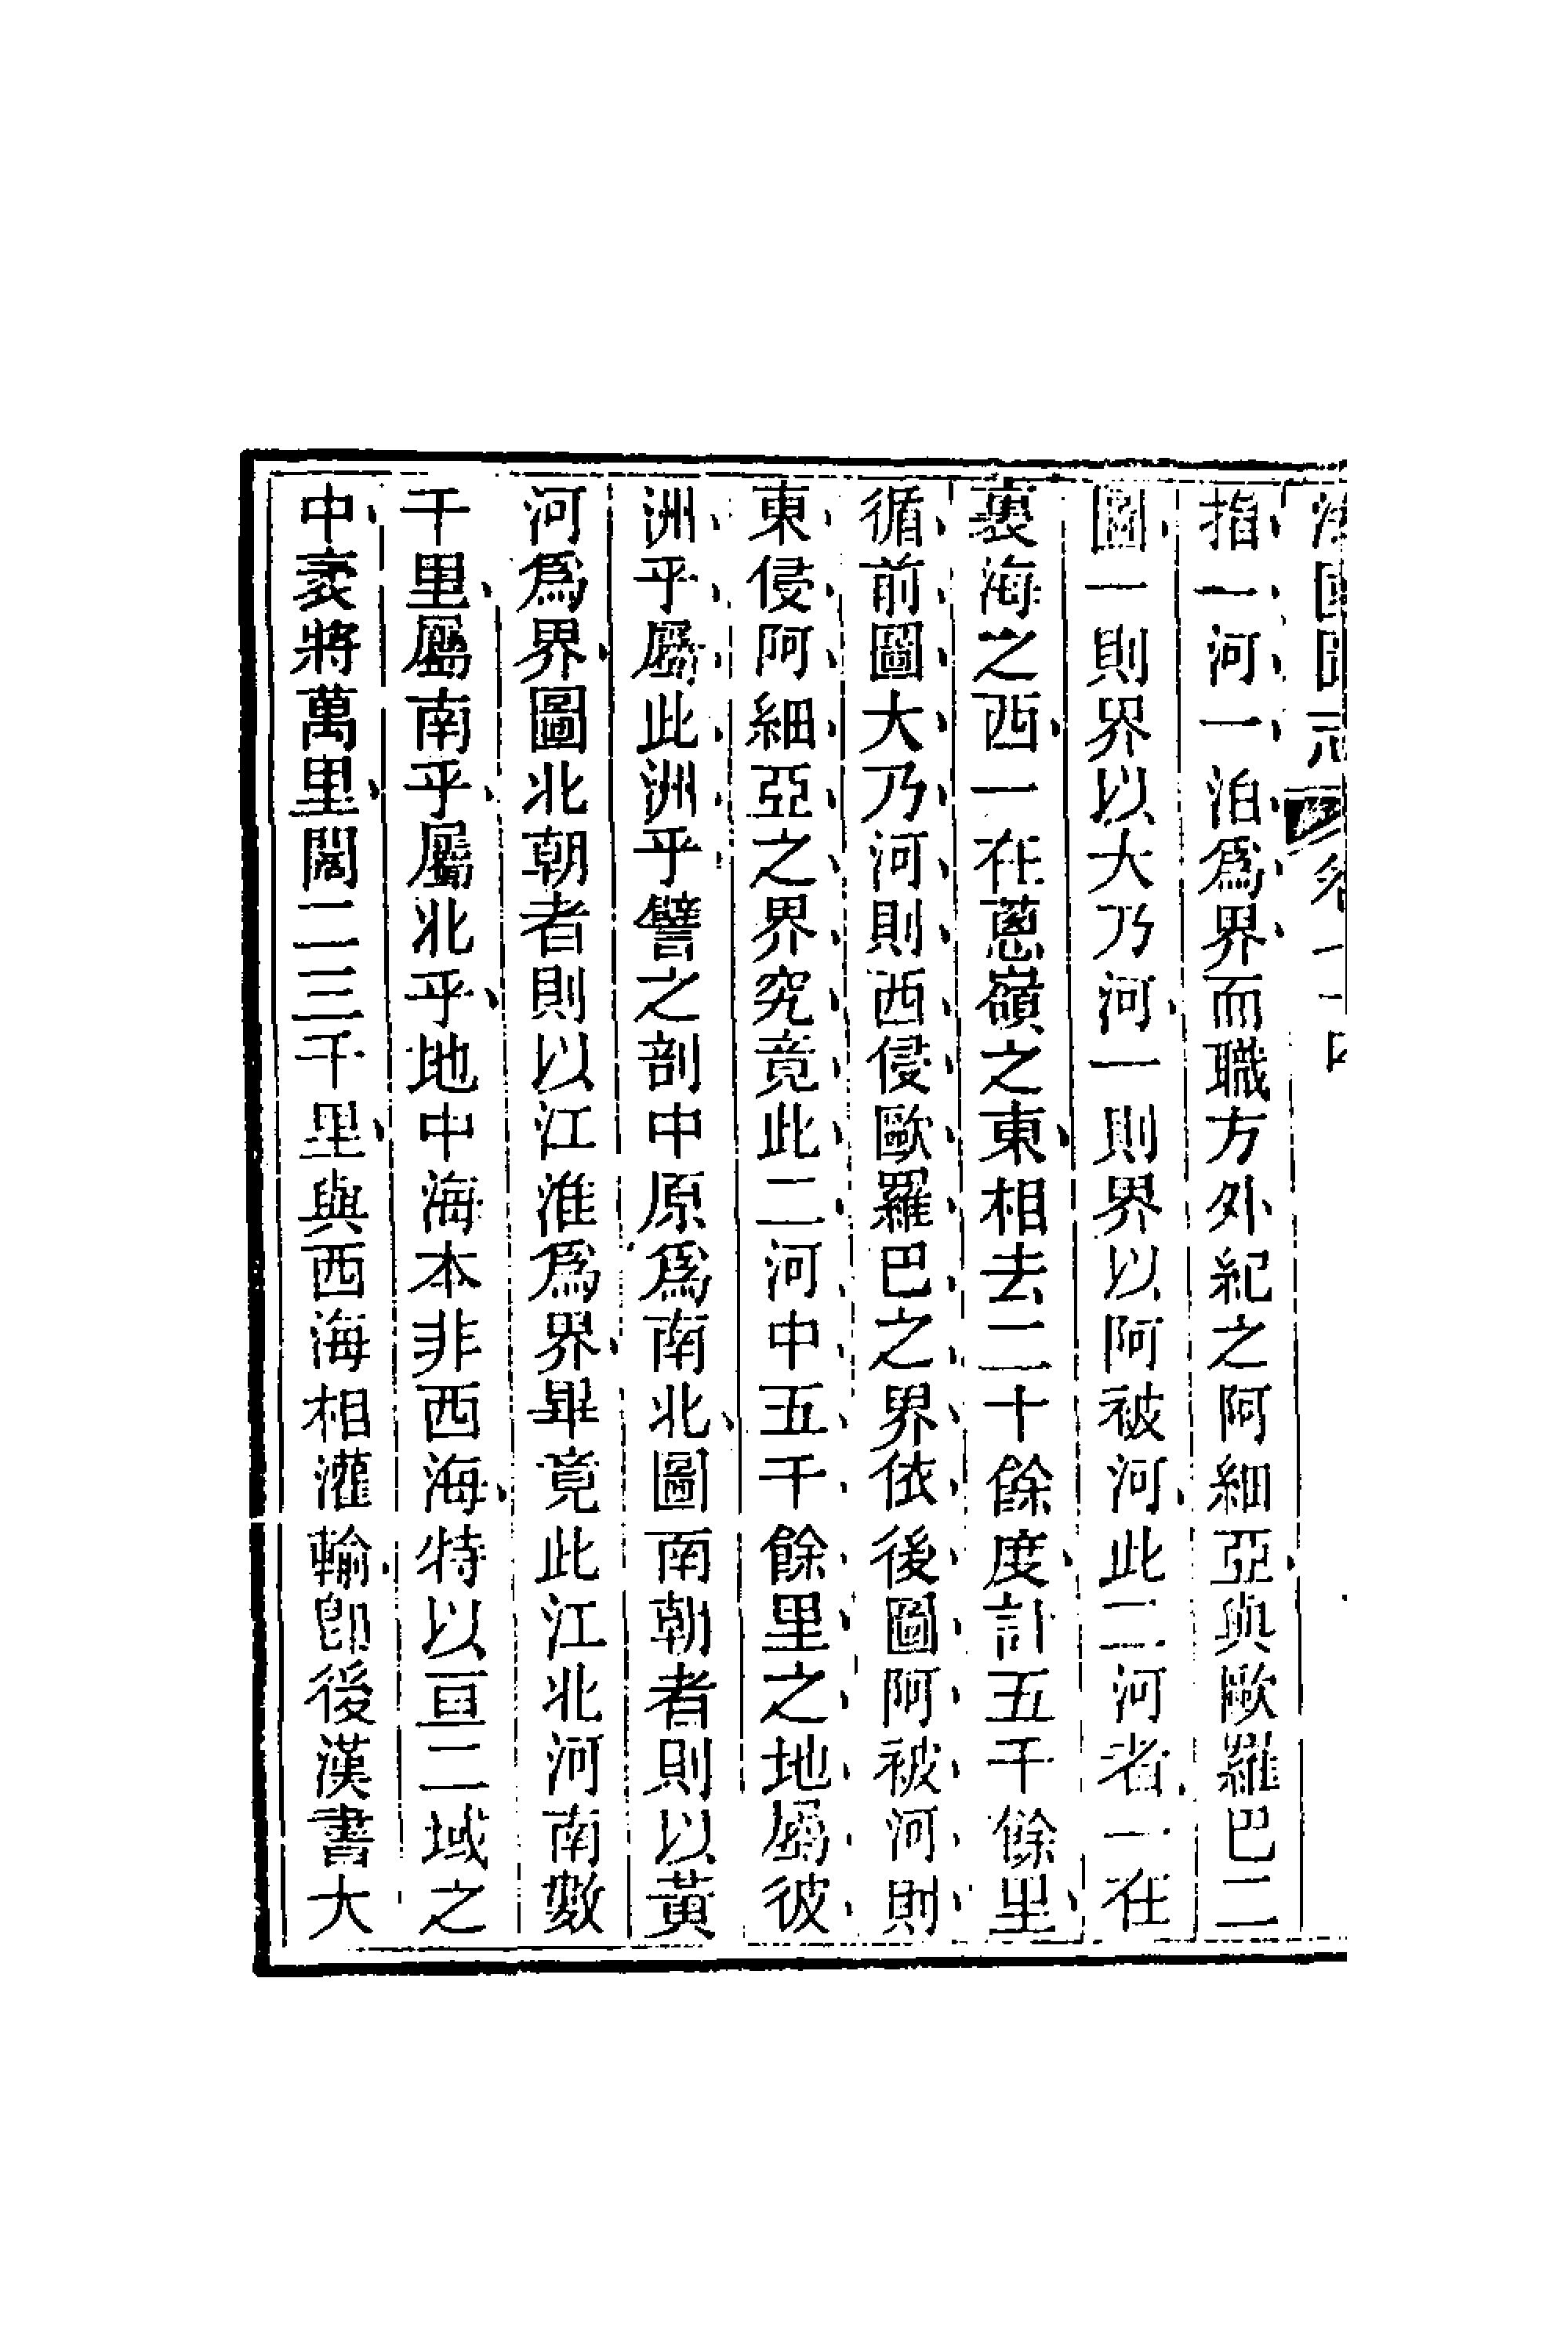 海國圖志 卷七十四
指一河一泊爲界而職方外紀之阿細亞與歐羅巴二
圖一則界以大乃河一則界以阿被河此二河者一在
裏海之西一在蔥嶺之東相去二十餘度計五千餘里
循前圖大乃河則西侵歐羅巴之界依後圖阿被河則
東侵阿細亞之界究竟此二河中五千餘里之地屬彼
洲乎屬此洲乎譬之剖中原爲南北圖南朝者則以黃
河爲界圖北朝者則以江淮爲界畢竟此江北河南數
千里屬南乎屬北乎地中海本非西海特以亘二域之
中袤將萬里闊二三千里與西海相灌輸卽後漢書大